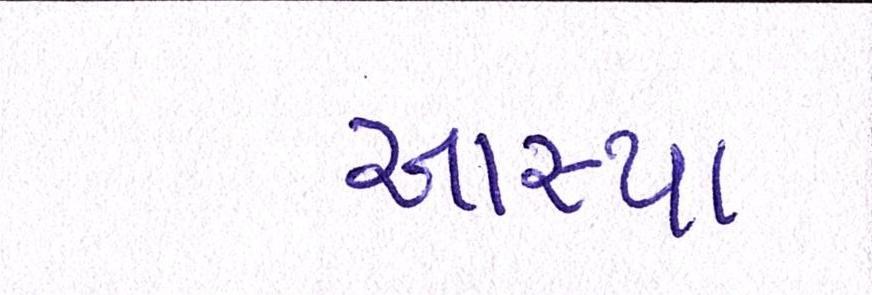 આસ્થા